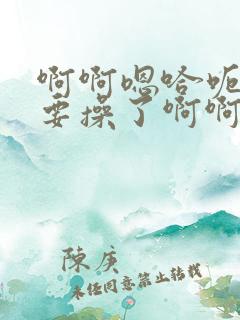 啊啊嗯哈呃
要操了啊啊
陳庚
未经同意禁止转载